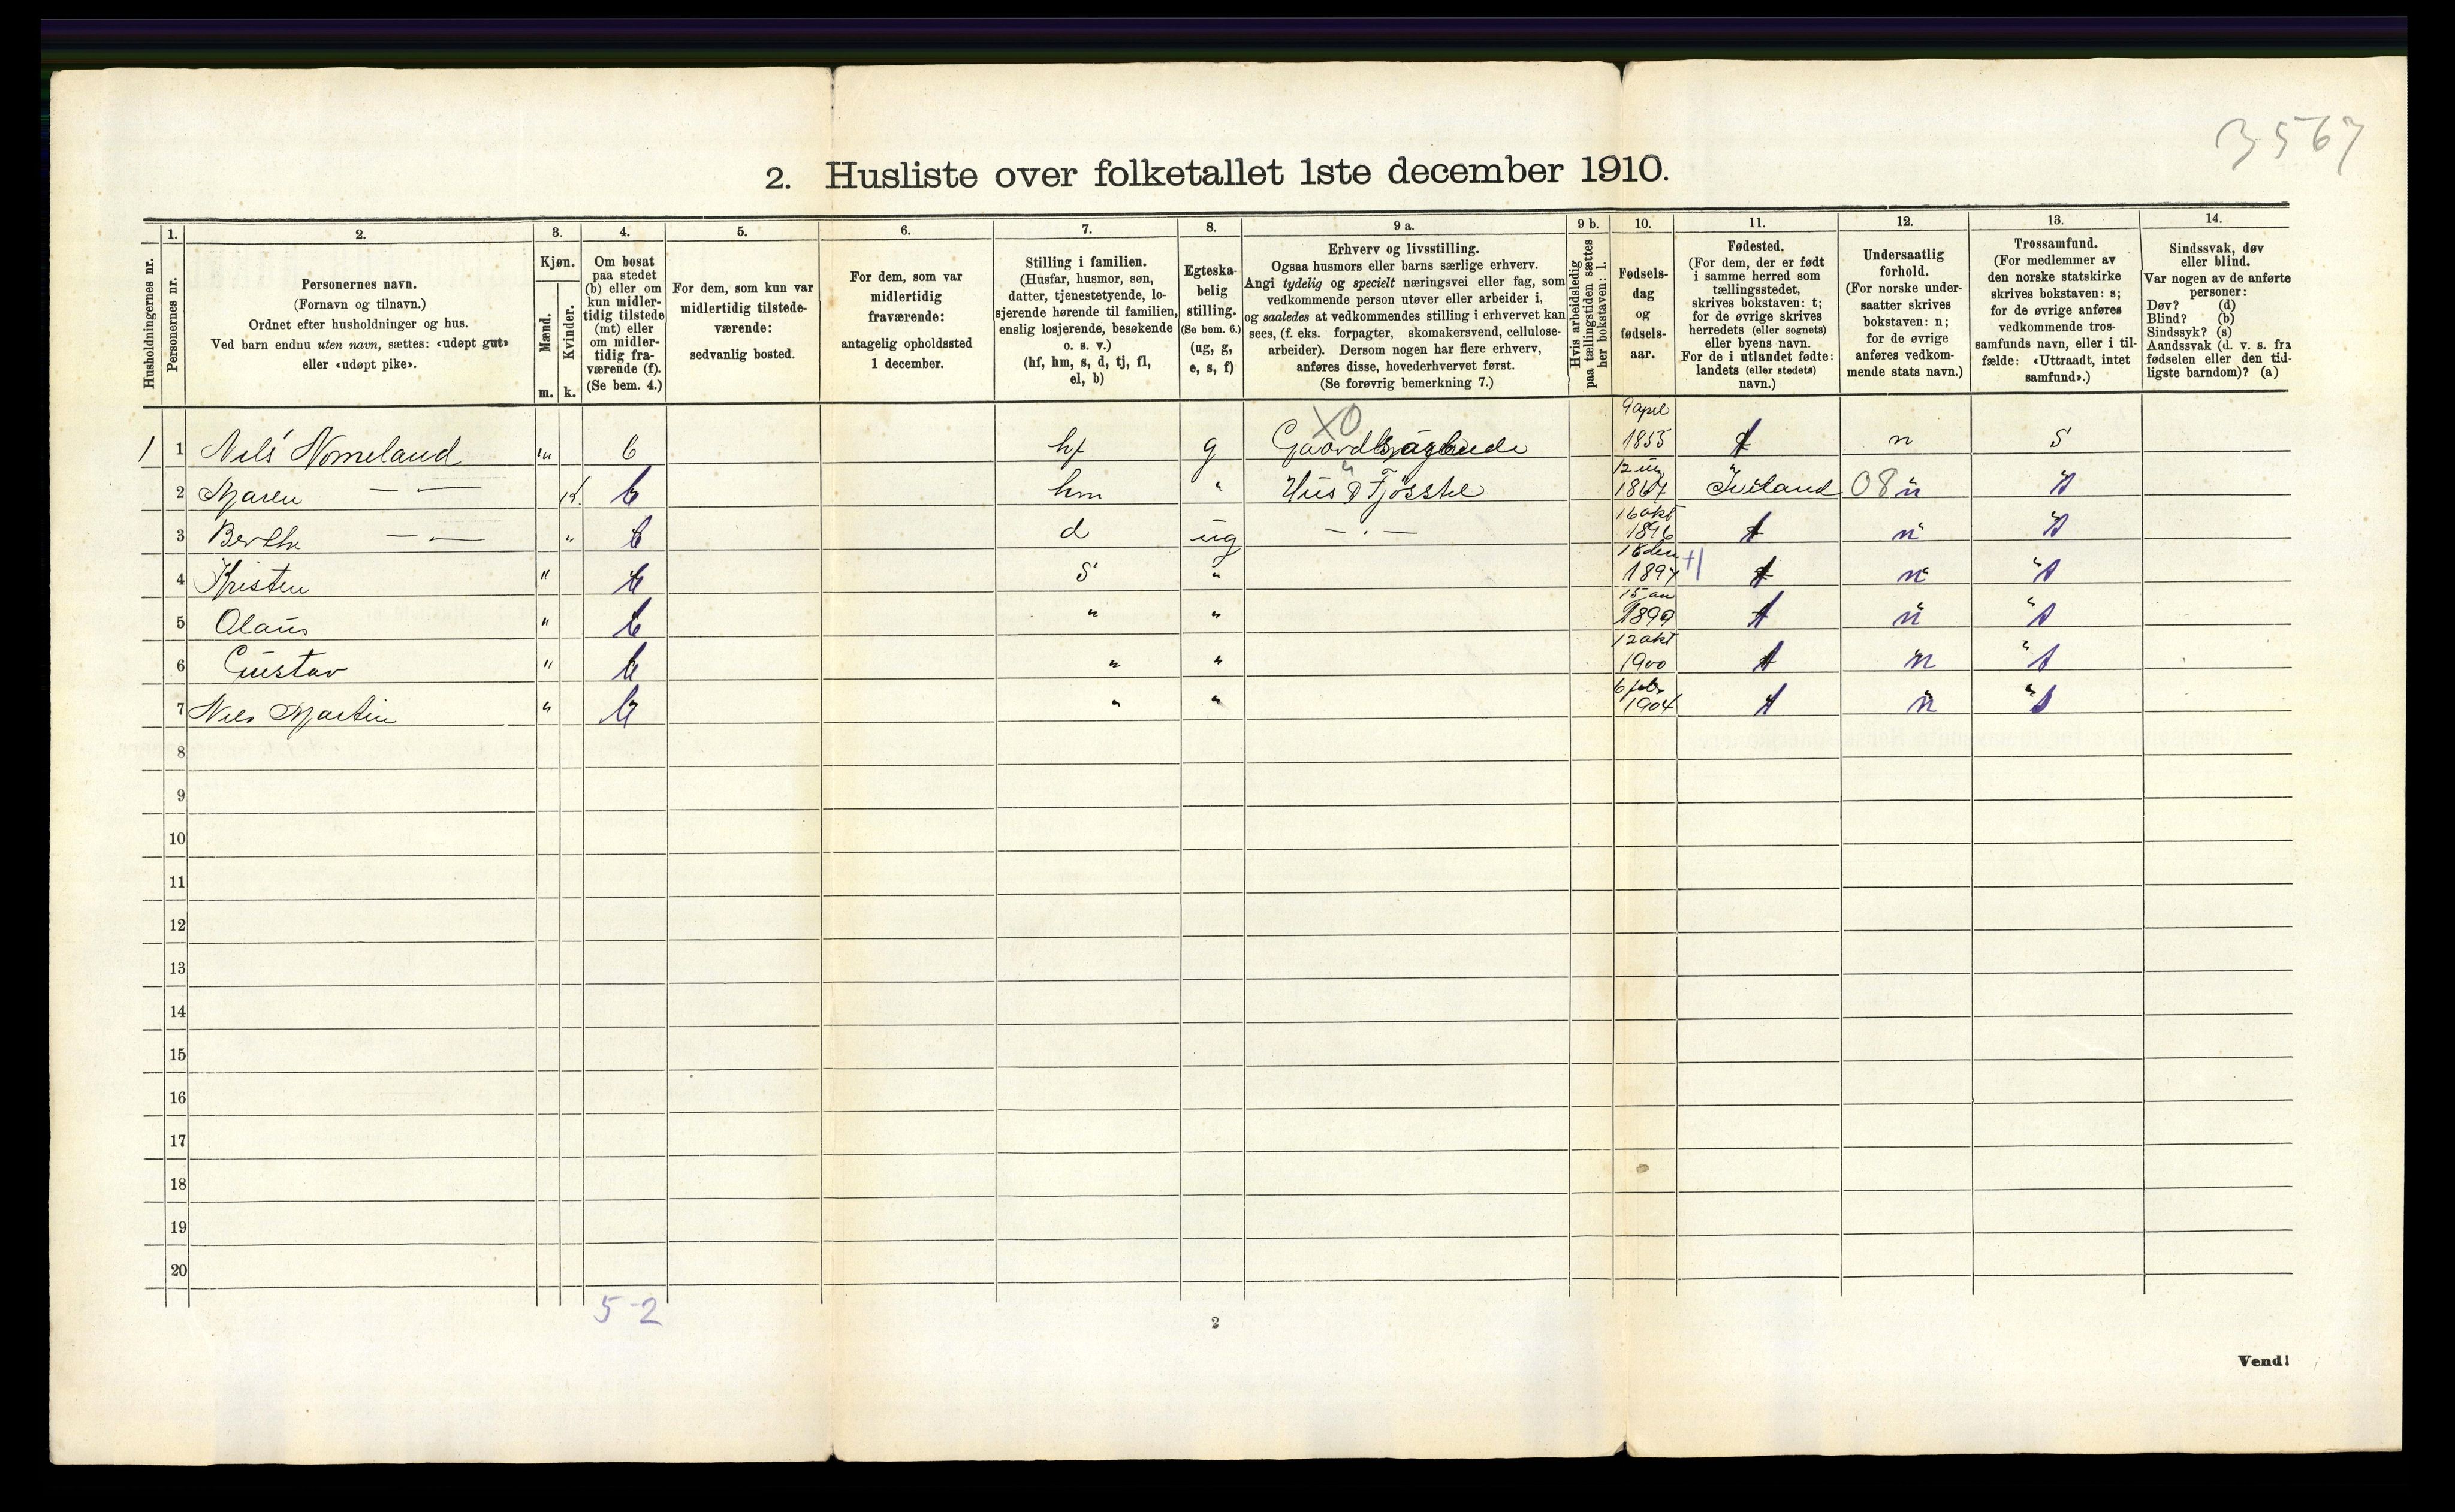 3567
2. Husliste over folketallet 1ste december 1910.
Husholdningernes nr.
1.
Personernes nr.
2.
Personernes navn.
(Fornavn og tilnavn.)
Ordnet efter husholdninger og hus.
Ved barn endnu uten navn, sættes: «udøpt gut»
eller «udøpt pike».
3.
Kjøn.
Mænd.
Kvinder.
m. k.
4.
Om bosat
paa stedet
(b) eller om
kun midler-
tidig tilstede
(mt) eller
om midler-
tidig fra-
værende (f).
(Se bem. 4.)
5.
For dem, som kun var
midlertidig tilstede-
værende:
sedvanlig bosted.
6.
For dem, som var
midlertidig
fraværende:
antagelig opholdssted
1 december.
7.
Stilling i familien.
(Husfar, husmor, søn,
datter, tjenestetyende, lo-
sjerende hørende til familien,
enslig losjerende, besøkende
o. s. v.)
(hf, hm, s, d, tj, fl,
el, b)
8.
Egteska-
belig
stilling.
(Se bem. 6.)
(ug, g,
e, s, f)
9 a.
Erhverv og livsstilling.
Ogsaa husmors eller barns særlige erhverv.
Angi tydelig og specielt næringsvei eller fag, som
vedkommende person utøver eller arbeider i,
og saaledes at vedkommendes stilling i erhvervet kan
sees, (f. eks. forpagter, skomakersvend, cellulose-
arbeider). Dersom nogen har flere erhverv,
anføres disse, hovederhvervet først.
(Se forøvrig bemerkning 7.)
9 b.
Hvis arbeidsledig
paa tællingstiden sættes
her bokstaven: l.
10.
Fødsels-
dag
og
fødsels-
aar.
11.
Fødested.
(For dem, der er født
i samme herred som
tællingsstedet,
skrives bokstaven: t;
for de øvrige skrives
herredets (eller sognets)
eller byens navn.
For de i utlandet fødte:
landets (eller stedets)
navn.)
12.
Undersaatlig
forhold.
(For norske under-
saatter skrives
bokstaven: n;
for de øvrige
anføres vedkom-
mende stats navn.)
13.
Trossamfund.
(For medlemmer av
den norske statskirke
skrives bokstaven: s;
for de øvrige anføres
vedkommende tros-
samfunds navn, eller i til-
fælde: «Uttraadt, intet
samfund».)
14.
Sindssvak, døv
eller blind.
Var nogen av de anførte
personer:
Døv? (d)
Blind? (b)
Sindssyk? (s)
Aandssvak (d. v. s. fra
fødselen eller den tid-
ligste barndom)? (a)
1 1 Nils Nomeland m b hf g X0 9 april 1855 t n s
2 Maren — — k b hm " Hus & 1867 Iveland 08 n s
3 Berthe — — " b d ug — " — 16 okt 1896 t n s
4 Kristen " b s " 1897 +1 t n s
5 Olaus " b " " 1899 t n s
6 Gustav " b " " 12 okt 1900 t n s
7 Nils Martin " b " " 6 febr 1904 t n s
8
9
10
11
12
13
14
15
16
17
18
19
20
5-2
2
Vend!